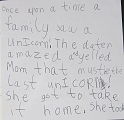 once upon a time a
family saw a
unIcorn. The dater
amazed a yelled
Mom that mustbethe
Last unICORN
She got to take
it home. She took